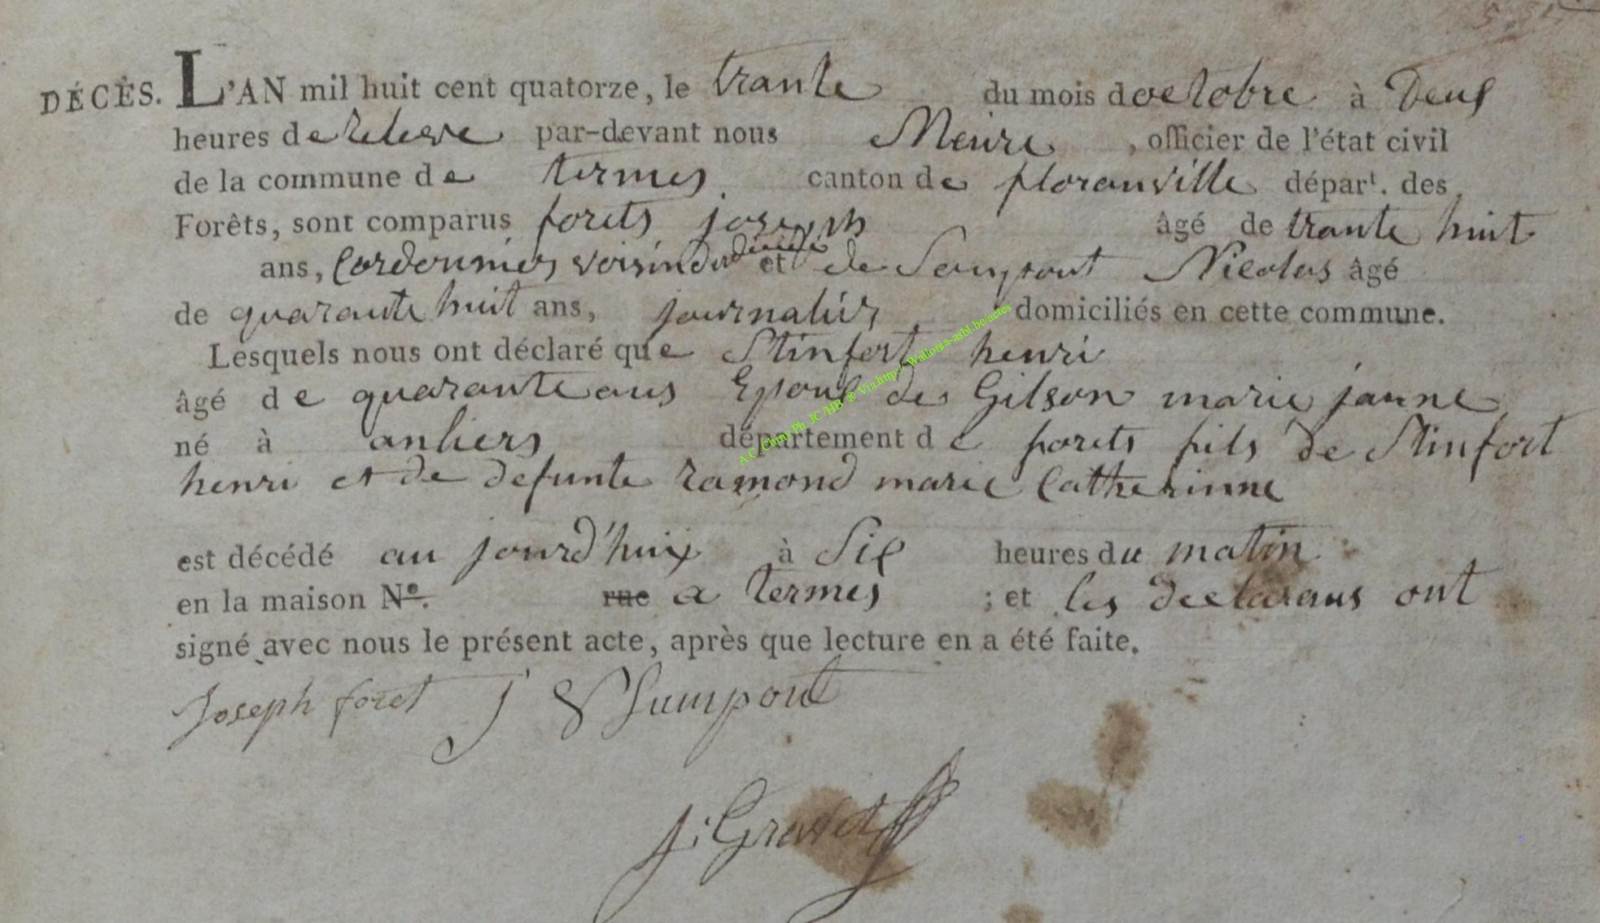 DÉCÈS. L'AN mil huit cent quatorze, le trante du mois doctobre à Deus
heures de releve par-devant nous Meire, officier de l'état civil
de la commune de termes canton de floranville départ. des
Forêts, sont comparus forets joseph âgé de trante huit
ans, Cordonnier voisin du décédé et de Sampont Nicolas âgé
de quarante huit ans, journalier domiciliés en cette commune.
Lesquels nous ont déclaré que Stinfort henri
âgé de quarante ans Epous de Gilson marie janne
né à anliers département de forets fils de Stinfort
henri et de defunte ramond marie Catherinne
est décédé au jourd'huix à Six heures du matin
en la maison Nº. rue a termes ; et les declarans ont
signé avec nous le présent acte, après que lecture en a été faite.
Joseph foret Sampont